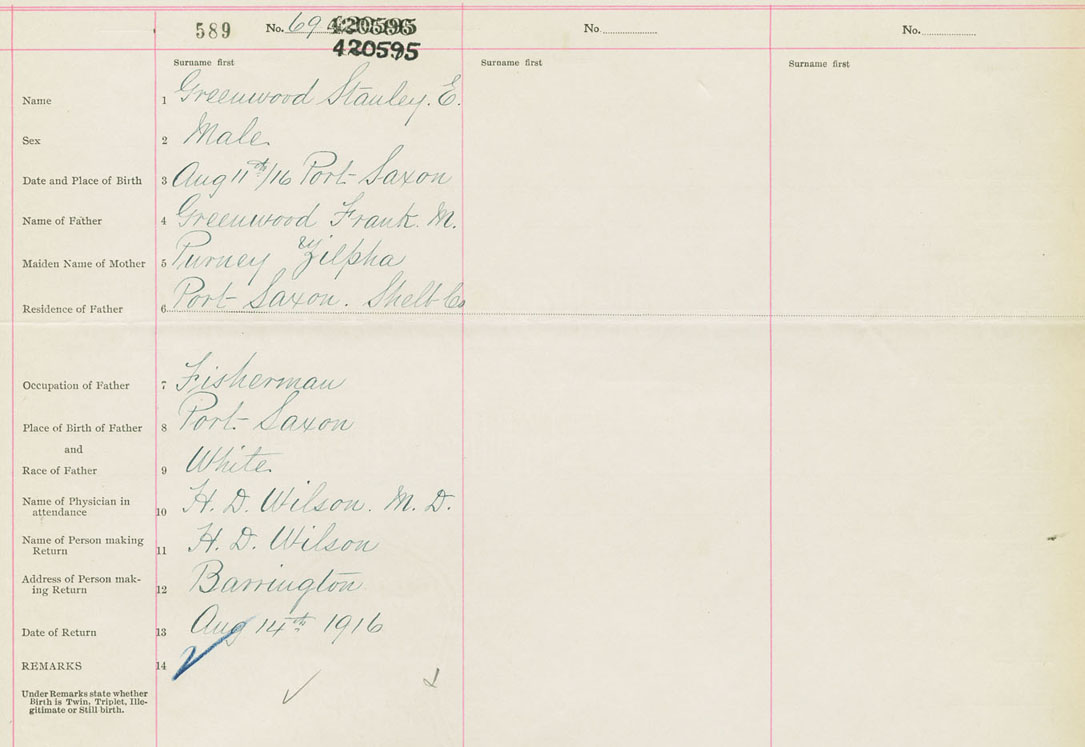 589 No. 420595 No. No.
420595
Surname first Surname first Surname first
Name 1 Greenwood Stanley. E.
Sex 2 Male.
Date and Place of Birth 3 Aug 11th/16 Port Saxon
Name of Father 4 Greenwood Frank. M.
Maiden Name of Mother 5 Purney Zilpha
Residence of Father 6 Port Saxon. Shelb Co
Occupation of Father 7 Fisherman
Place of Birth of Father 8 Port Saxon
and
Race of Father 9 White.
Name of Physician in
attendance 10 H. D. Wilson. M. D.
Name of Person making
Return 11 H. D. Wilson
Address of Person mak-
ing Return 12 Barrington
Date of Return 13 Aug 14th 1916
REMARKS 14
Under Remarks state whether
Birth is Twin, Triplet, Ille-
gitimate or Still birth.